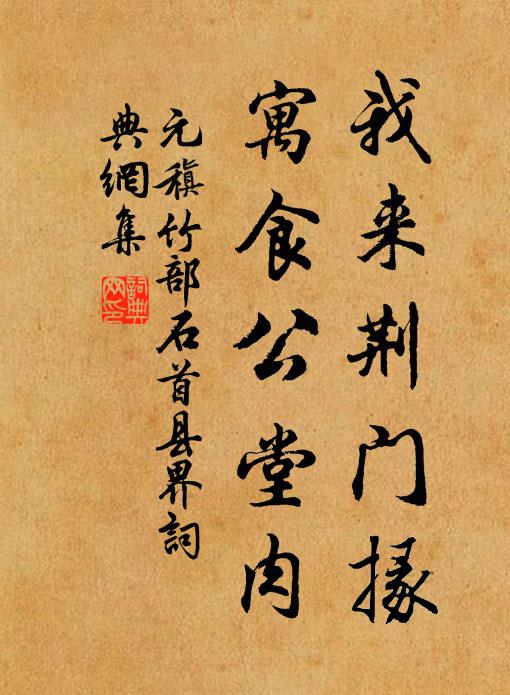 我来荆门掾
寓食公堂肉
元稹竹部石首县界詞
典網集
詞典网印